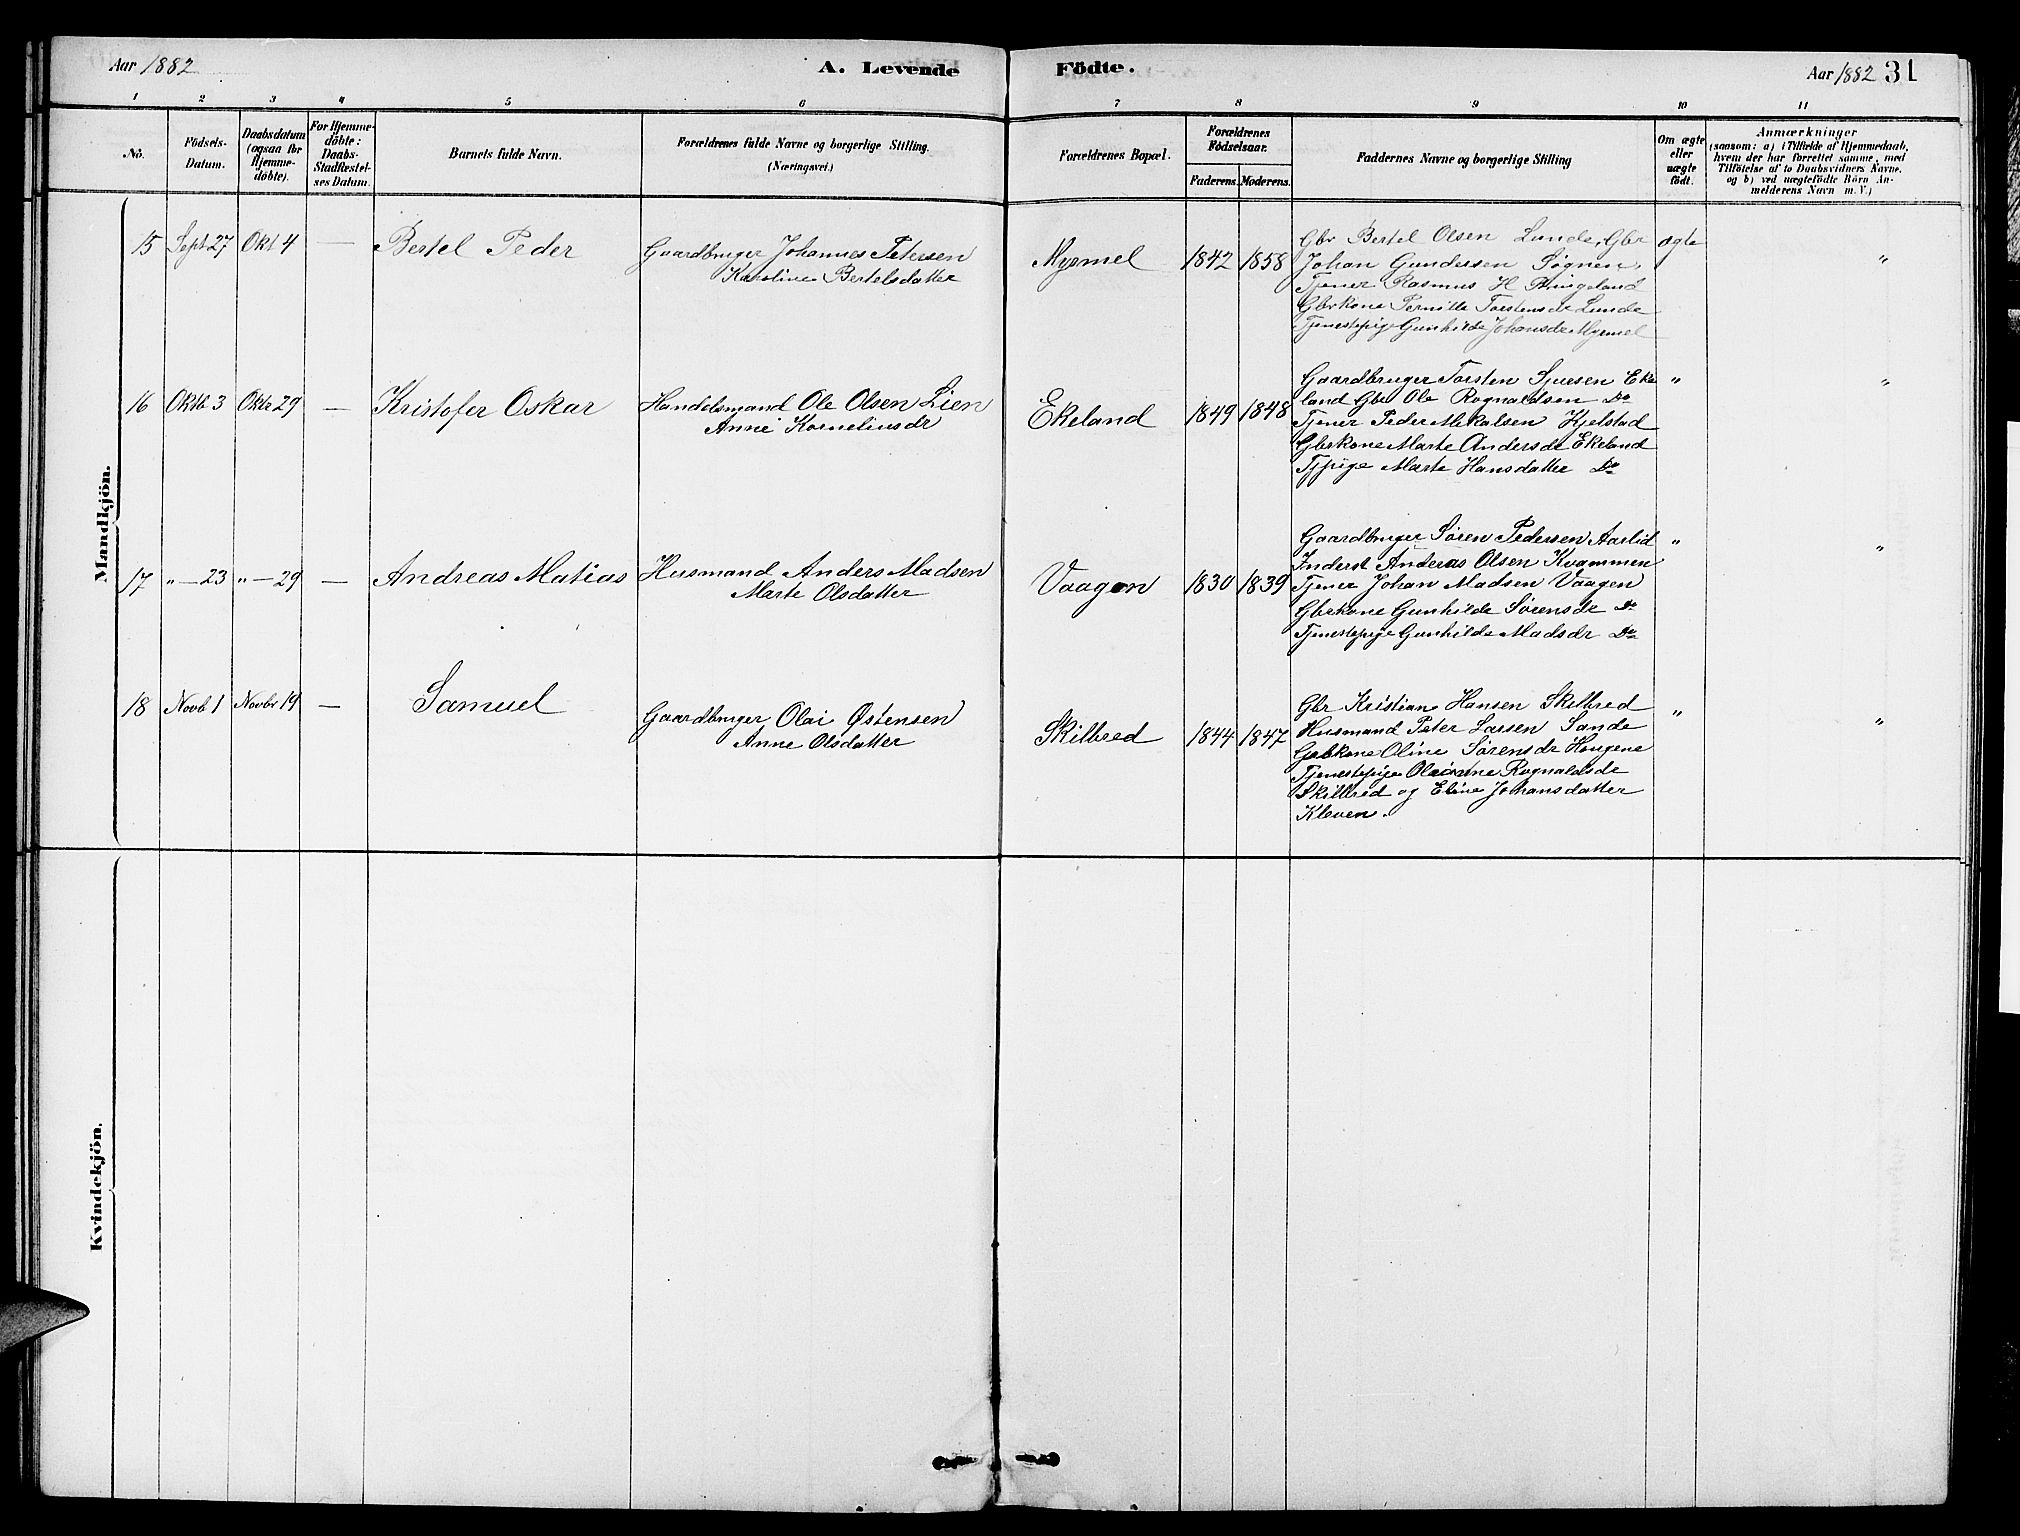 Aar 1882
A. Levende Födte.
Aar 1882 31
1 2 3 4 5 6 7 8 9 10 11
No.
Födsels-
Datum.
Daabsdatum
(ogsaa for
Hjemme-
döbte).
For Hjemme-
döbte:
Daabs-
Stadfæstel-
ses Datum.
Barnets fulde Navn.
Forældrenes fulde Navne og borgerlige Stilling.
(Næringsvei.)
Forældrenes Bopæl.
Forældrenes
Födselsaar.
Faderens. Moderens.
Faddernes Navne og borgerlige Stilling
Om ægte
eller
uægte
födt.
Anmærkninger
(saasom: a) i Tilfælde af Hjemmedaab,
hvem der har forrettet samme, med
Tilföielse af to Daabsvidners Navne.
og b) ved uægtefödte Börn An-
melderens Navn m. V.)
Mandkjön.
15 Sept 27 Okt 4 — Bertel Peder
Gaardbruger Johannes Petersen
Karoline Bertelsdatter
Myrmel 1842 1858
Gbr Bertel Olsen Lunde, Gbr
Johan Gundersen Søgnen,
Tjener Rasmus H
Gbrkone Pernille Torstensdr Lunde
Tjenestepige Gunhilde Johansdr Myrmel
ægte "
16 Oktb 3 Oktbr 29 — Kristofer Oskar
Handelsmand Ole Olsen Lien
Anne Korneliusdr
Ekeland 1849 1848
Gaardbruger Torsten Sjursen Eke
land Gbr Ole Rognaldsen Do
Tjener Peder Mikalsen Kjelstad
Gbrkone Marte Andersdr Ekeland
Tjpige Marte Hansdatter Do
" "
17 " — 23 " — 29 — Andreas Matias
Husmand Anders Madsen
Marte Olsdatter
Vaagen 1830 1839
Gaardbruger Søren Pedersen Aarlid
Inderst Anderas Olsen Kvammen
Tjener Johan Madsen Vaagen
Gbrkone Gunhilde Sørensdr Do
Tjenestepige Gunhilde Madsdr Do
" "
18 Novb 1 Novbr 19 — Samuel
Gaardbruger Olai Østensen
Anne Olsdatter
Skilbred 1844 1847
Gbr Kristian Hansen Skilbred
Husmand Peter Larsen Sande
Gbrkone Oline Sørensdr Hougene
Tjenestepige Rognaldsdr
Skilbred og Eline Johansdatter
Kleven.
" "
Kvindekjön.